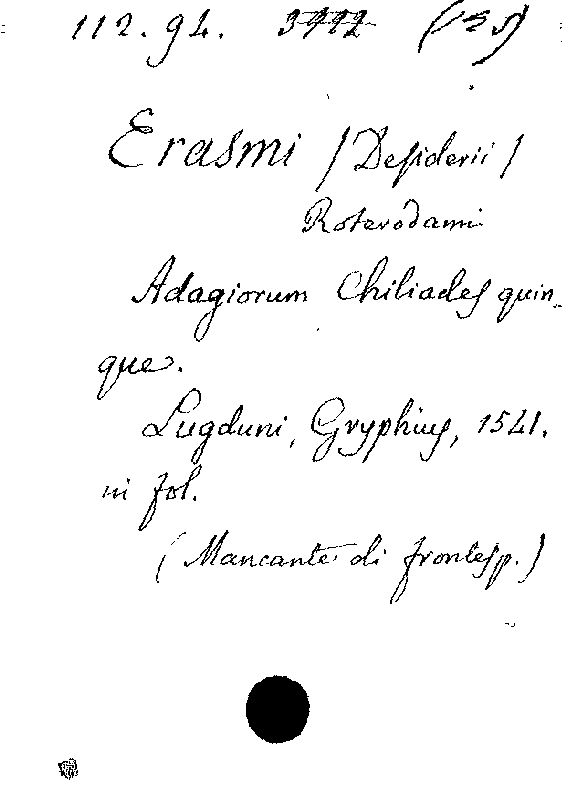 112. 94. (125)
Erasmi /Desiderii/
Roterodami
Adagiorum Chiliades quin-
que.
Lugduni, Gryphius, 1541.
in fol.
(Mancante di frontesp.)